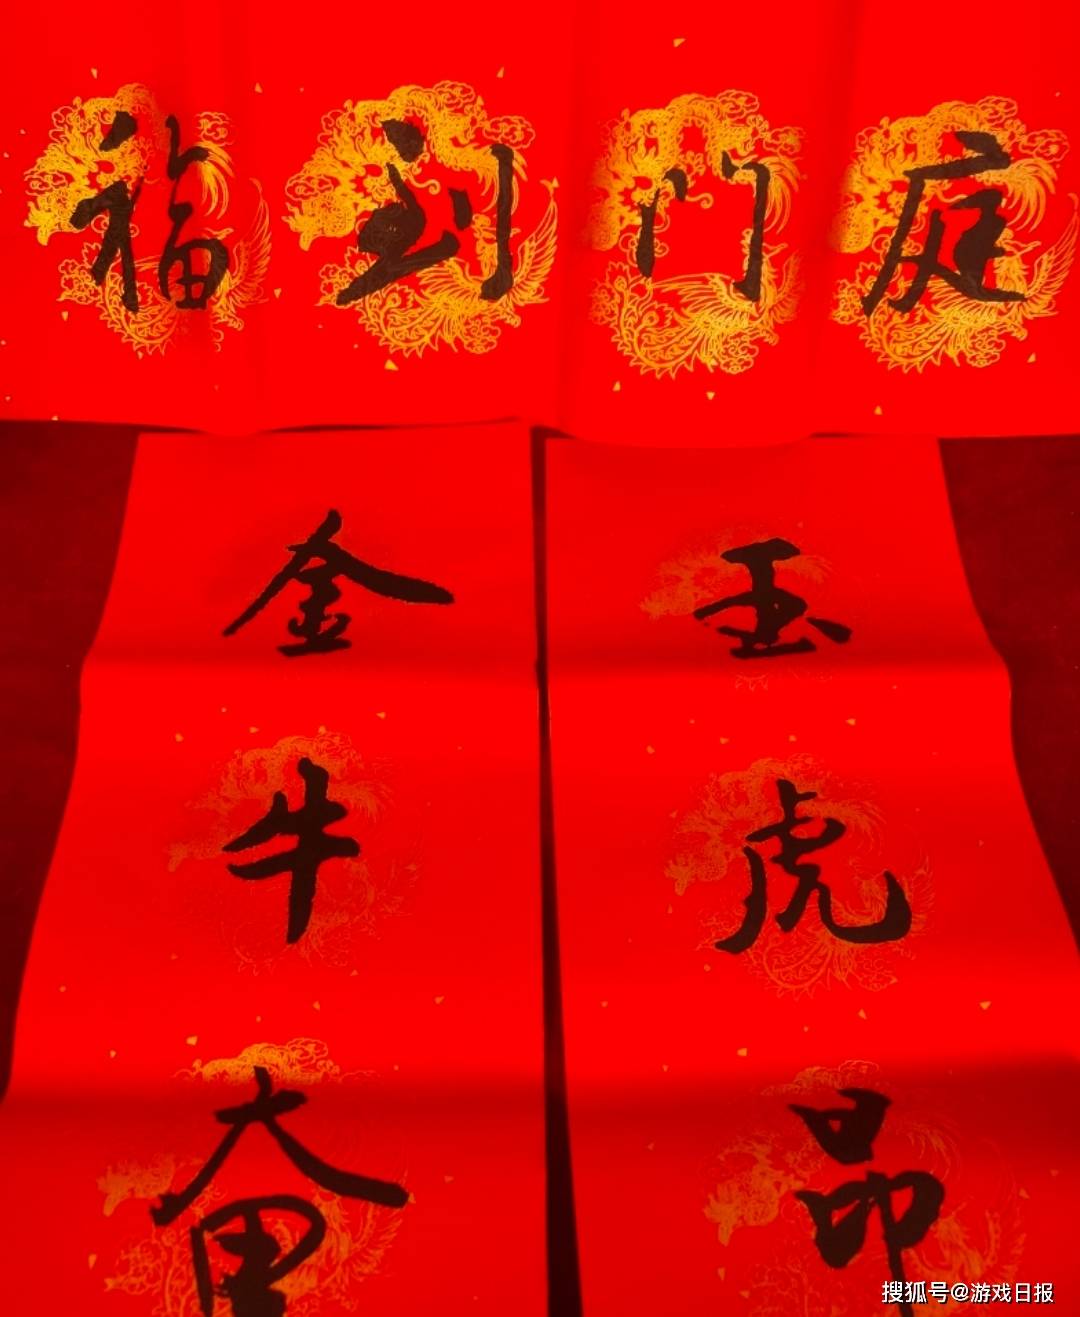 福到门庭
金牛奋
玉虎昂
搜狐号@游戏日报